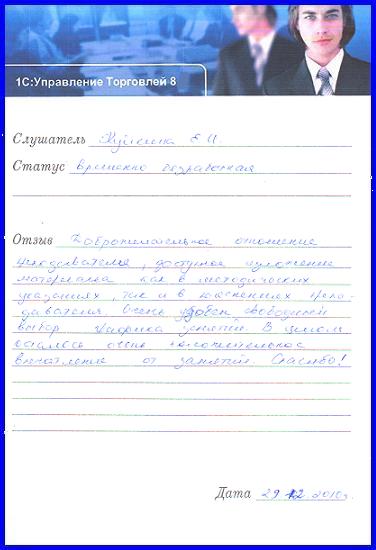 1С:Управление Торговлей 8
Слушатель Е. И.
Статус временно безработная
Отзыв Доброжелательное отношение
преподавателя, доступное изложение
материала как в методических
указаниях, так и в пояснениях препо-
давателя. Очень удобен свободный
выбор графика занятий. В целом
осталось очень положительное
впечатление от занятий. Спасибо!
Дата 29 12 2010г.